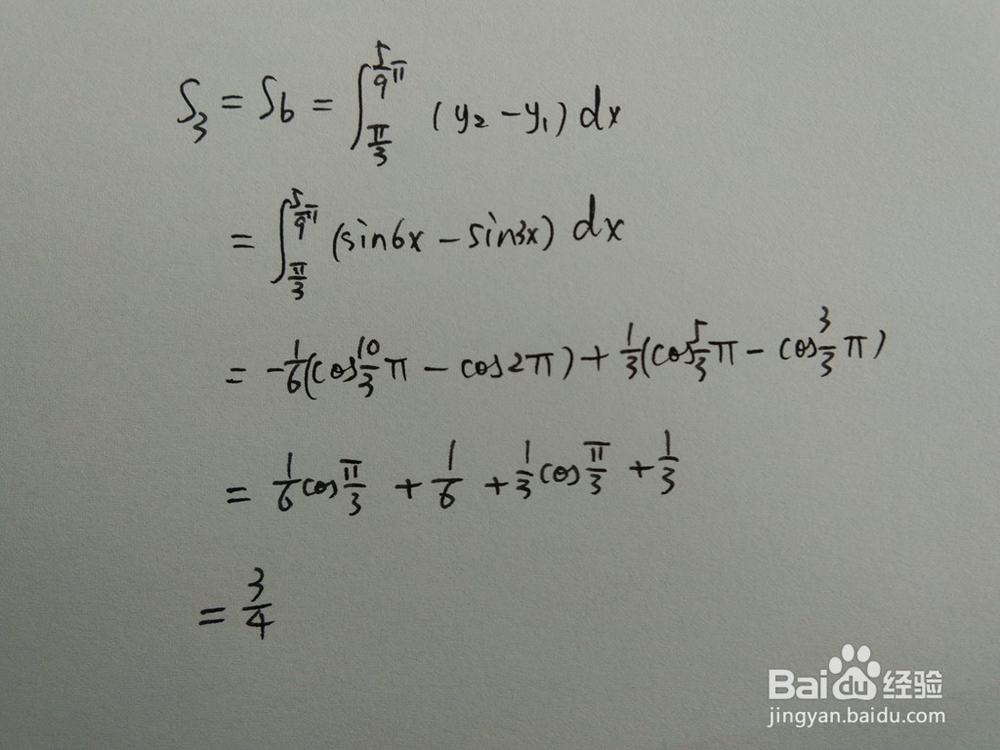 S₃ = S₆ = ∫_{π/3}^{5/9 π} (y₂ - y₁) dx
= ∫_{π/3}^{5/9 π} (sin6x - sin3x) dx
= -1/6(cos 10/3 π - cos2π) + 1/3(cos 5/3 π - cos 3/3 π)
= 1/6 cos π/3 + 1/6 + 1/3 cos π/3 + 1/3
= 3/4
Baidu 经验
jingyan.baidu.com